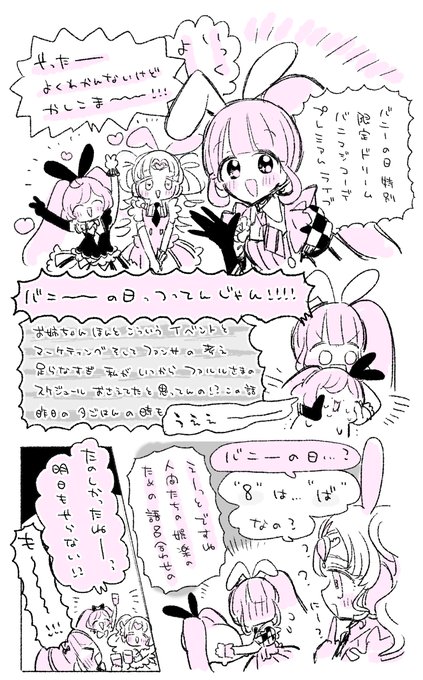 バニーの日特別
限定ドリーム
バニマジコーデ
プレミアムライブ
いっくよー
やったー
よくわかんないけど
かしこま〜〜〜!!!
バニーの日っつってんじゃん!!!!
お姉ちゃんほんとこういうイベントと
マーケティングそしてファンサの考え
足らなすぎ 私がいつからファルルさまの
スケジュールおさえてたと思ってんの!?この話
昨日の夕ごはんの時も
うええ
バニーの日…?
"8"は…"ば"
なの?
えーっとですね
人間たちの娯楽の
ための語呂合わせの
たのしかったねー
明日もやらない!?
もー
!!!